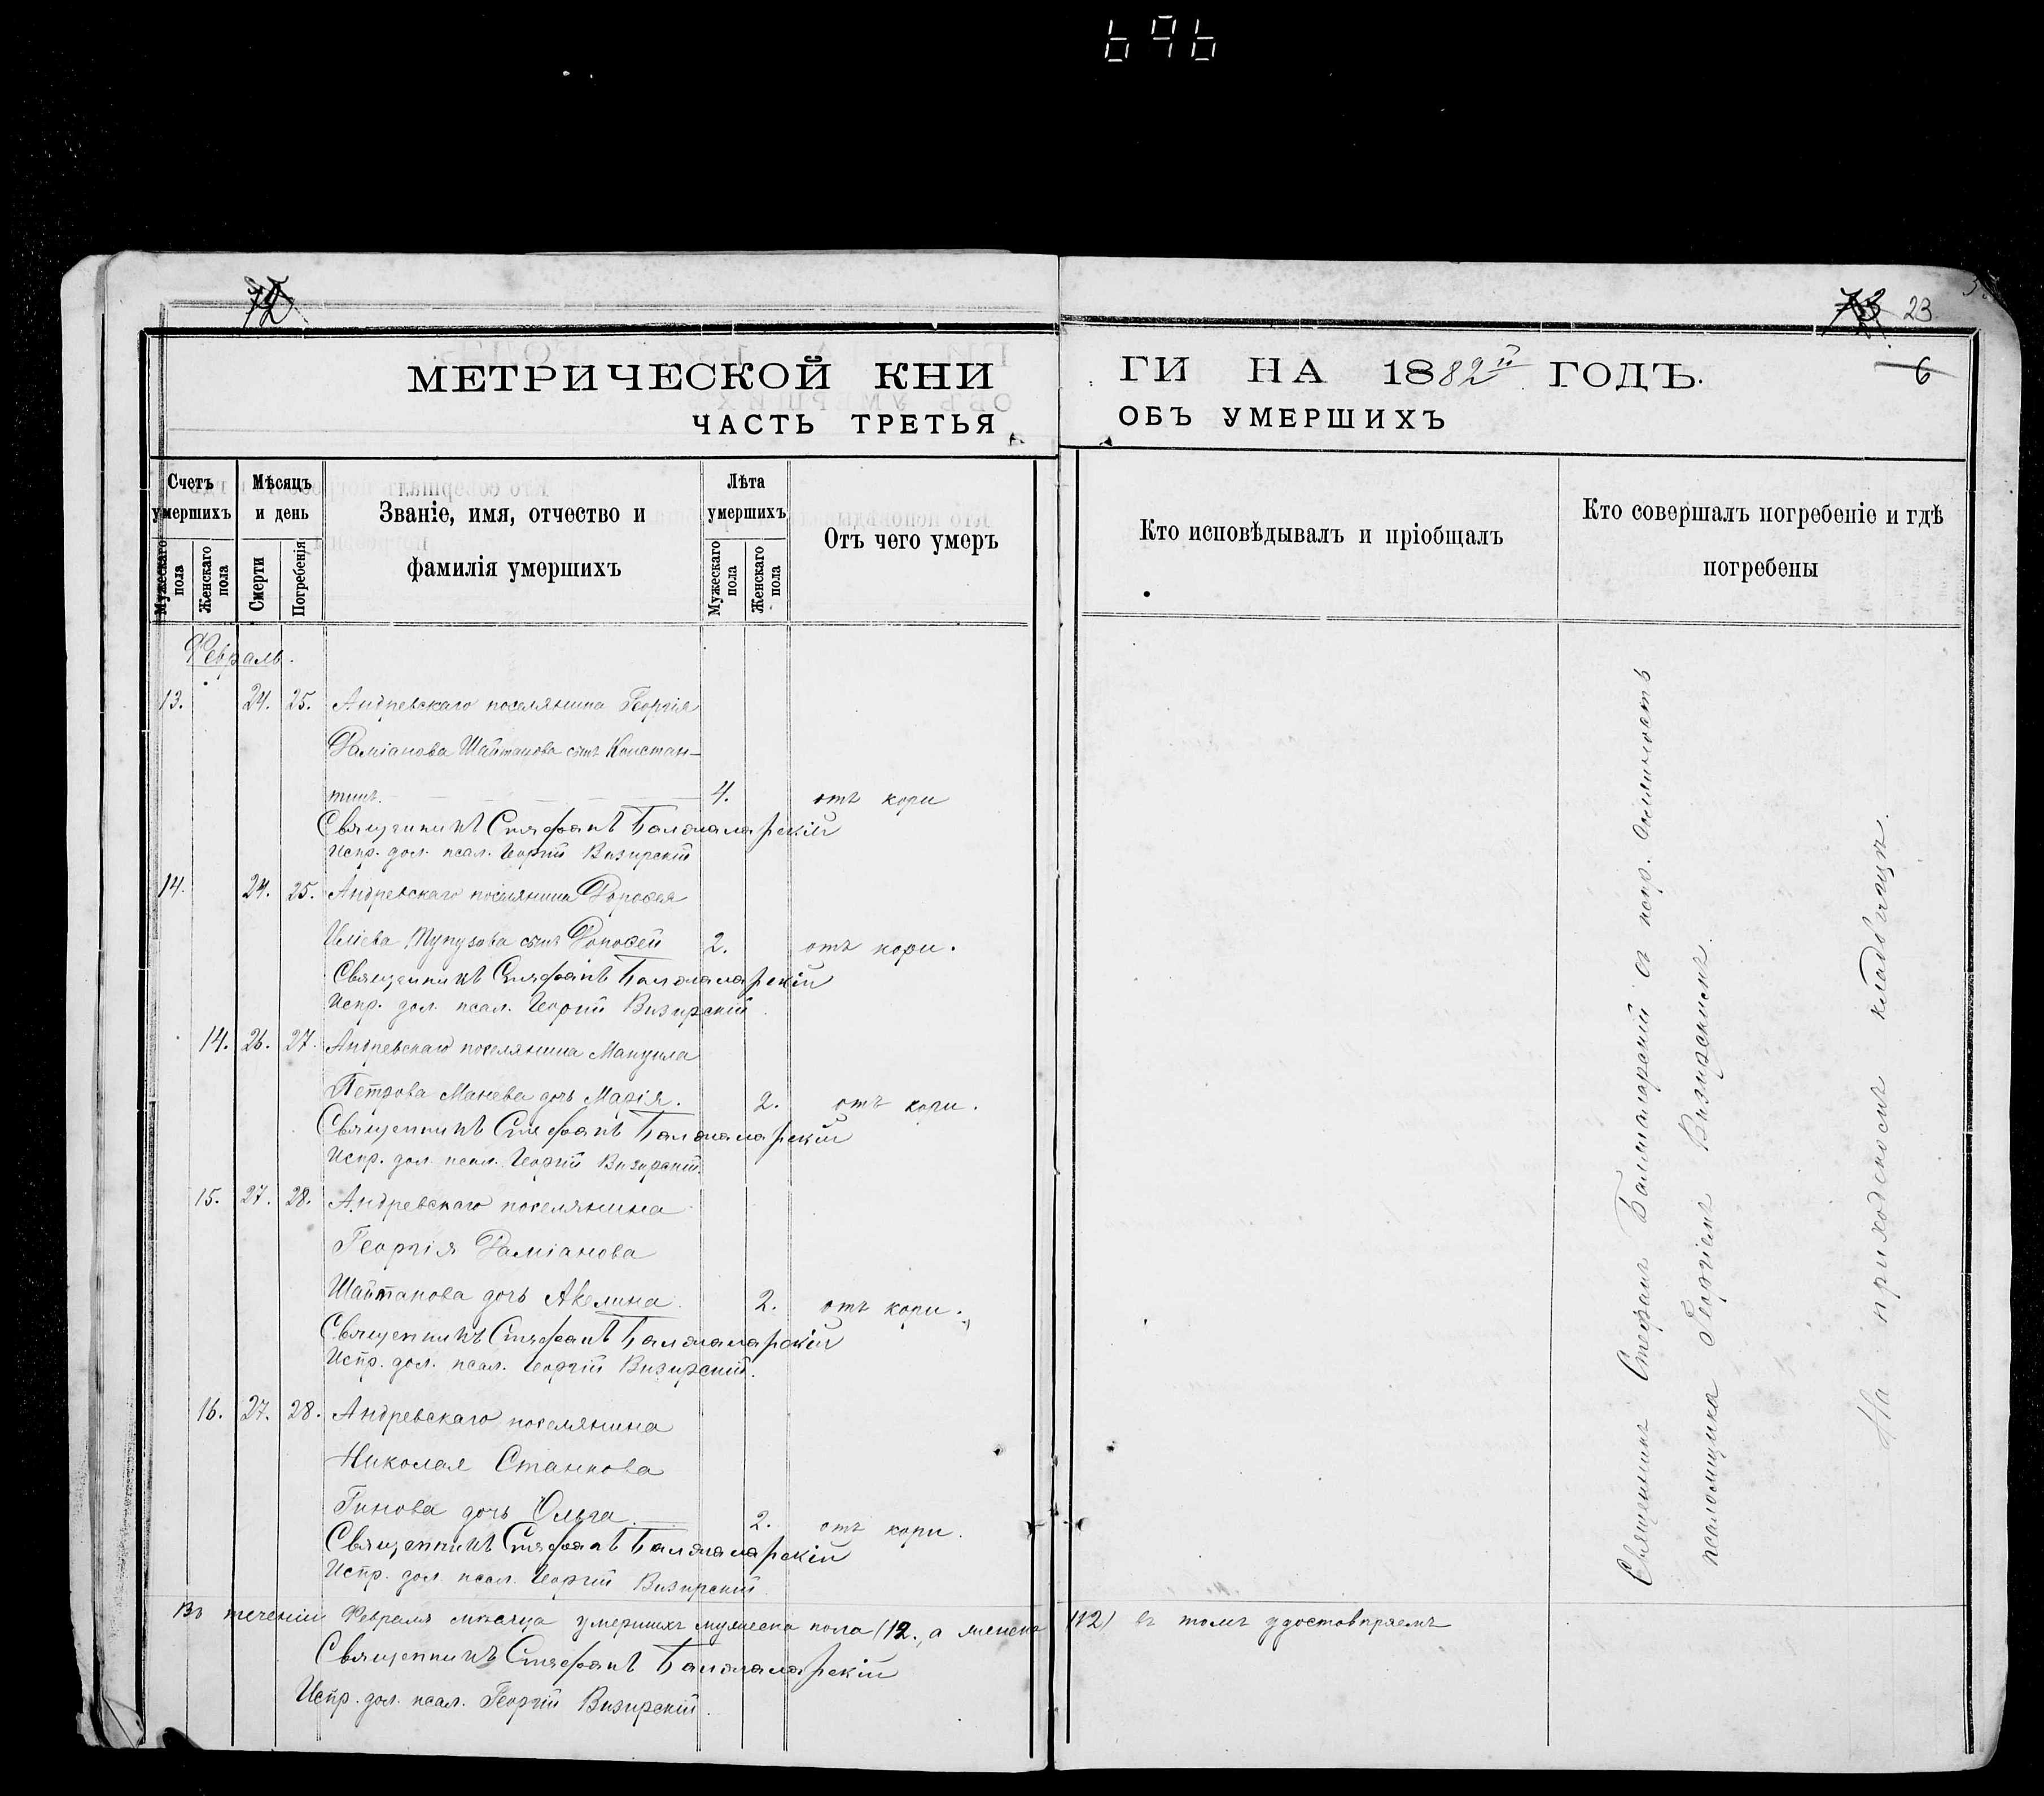 696
72
73 23
6
МЕТРИЧЕСКОЙ КНИ
ГИ НА 1882й ГОДЪ.
ЧАСТЬ ТРЕТЬЯ
ОБЪ УМЕРШИХЪ
Счетъ умершихъ
Мужескаго пола
Женскаго пола
Мѣсяцъ и день
Смерти
Погребенія
Званіе, имя, отчество и
фамилія умершихъ
Лѣта умершихъ
Мужескаго пола
Женскаго пола
Отъ чего умеръ
Кто исповѣдывалъ и пріобщалъ
Кто совершалъ погребеніе и гдѣ
погребены
Февраль.
13. 24. 25. Андревскаго поселянина Георгія
Даміанова Шайтанова сынъ Констан-
тинъ. 4. отъ кори
Священникъ Стефанъ Балмаларскій
Испр. дол. псал. Георгій Визирскій
14. 24. 25. Андревскаго поселянина Дорофея
Иліева сынъ 2. отъ кори.
Священникъ Стефанъ Балмаларскій
Испр. дол. псал. Георгій Визирскій.
14. 26. 27. Андревскаго поселянина Мануила
Петрова Манева дочь Марія. 2. отъ кори.
Священникъ Стефанъ Балмаларскій
Испр. дол. псал. Георгій Визирскій.
15. 27. 28. Андревскаго поселянина
Георгія Даміанова
Шайтанова дочь Акелина. 2. отъ кори.
Священникъ Стефанъ Балмаларскій
Испр. дол. псал. Георгій Визирскій.
16. 27. 28. Андревскаго поселянина
Николая Станкова
Гинова дочь Ольга. 2. отъ кори.
Священникъ Стефанъ Балмаларскій
Испр. дол. псал. Георгій Визирскій
Въ теченіи Февраля мѣсяца умершихъ мужеска пола (12., а женска (12) въ томъ удостовѣряемъ
Священникъ Стефанъ Балмаларскій
Испр. дол. псал. Георгій Визирскій.
Священникъ Стефанъ Балмаларскій съ испр. должность
псаломщика Георгіемъ Визирскимъ.
На приходскомъ кладбищѣ.